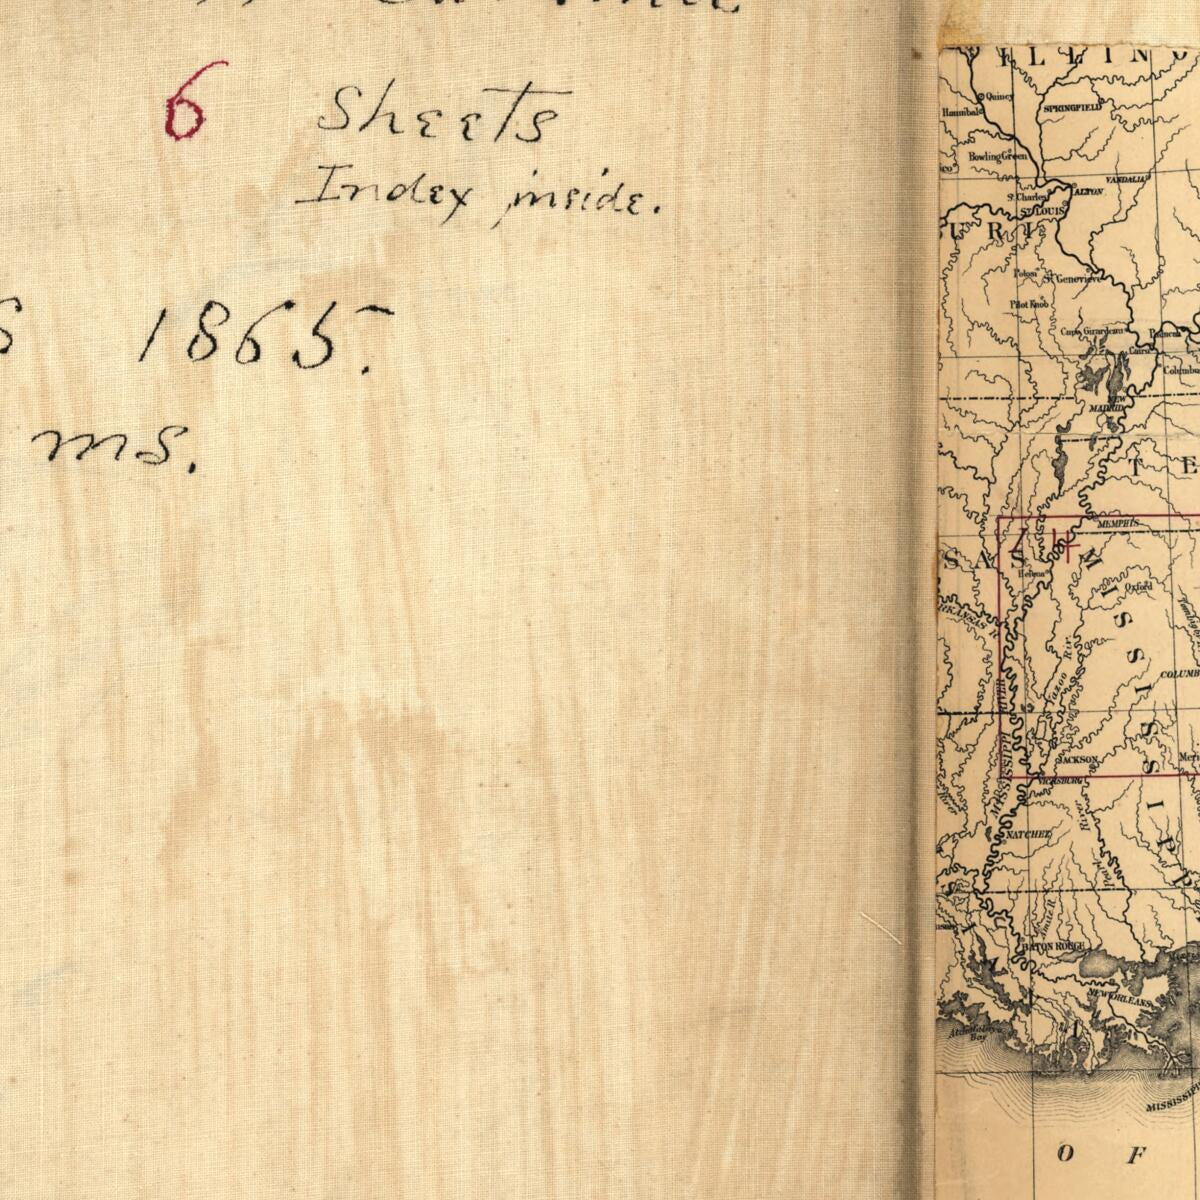 6 Sheets
Index inside.
1865.
ms.
ILLINO
Quincy
Hannibal
SPRINGFIELD
Bowling Green
VANDALIA
ALTON
St Charles
ST LOUIS
URI
Potosi
St Genevieve
Pilot Knob
Cape Girardeau
Cairo
Columbu
NEW
MADRID
T E
MEMPHIS
SAS
Helena
Oxford
MISSISSIPPI
ARKANSAS R.
Yazoo Riv.
COLUMB
MISSISSIPPI RIVER
JACKSON
Meri
VICKSBURG
NATCHEZ
Pearl River
Amite R.
BATON ROUGE
NEW ORLEANS
Atchafalaya
Bay
MISSISSIPPI
O F